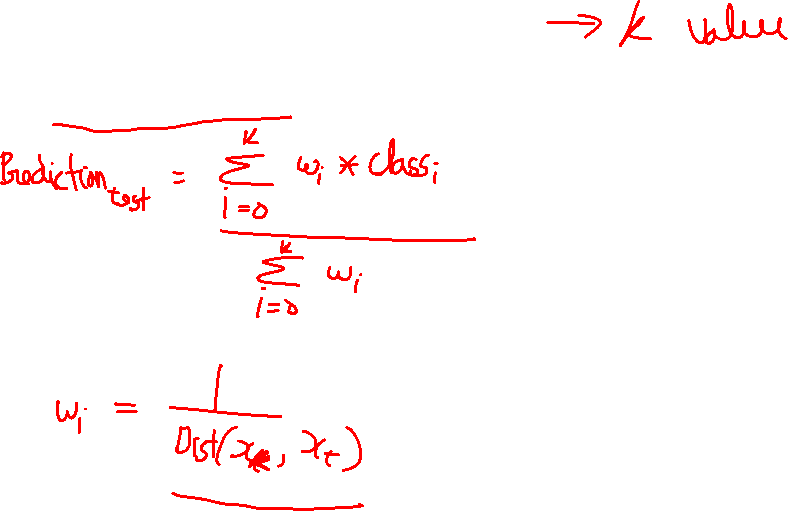 → k value
Prediction_test = Σ_{i=0}^{k} w_i * class_i
Σ_{i=0}^{k} w_i
w_i = 1
Dist(x, x_t)